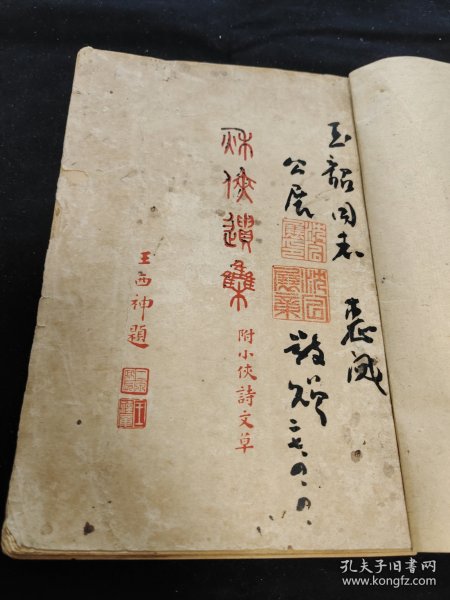 玉韶同志 惠
公展 敬贈
秋俠遺集
附小俠詩文草
王西神題
孔夫子旧书网
www.kongfz.com